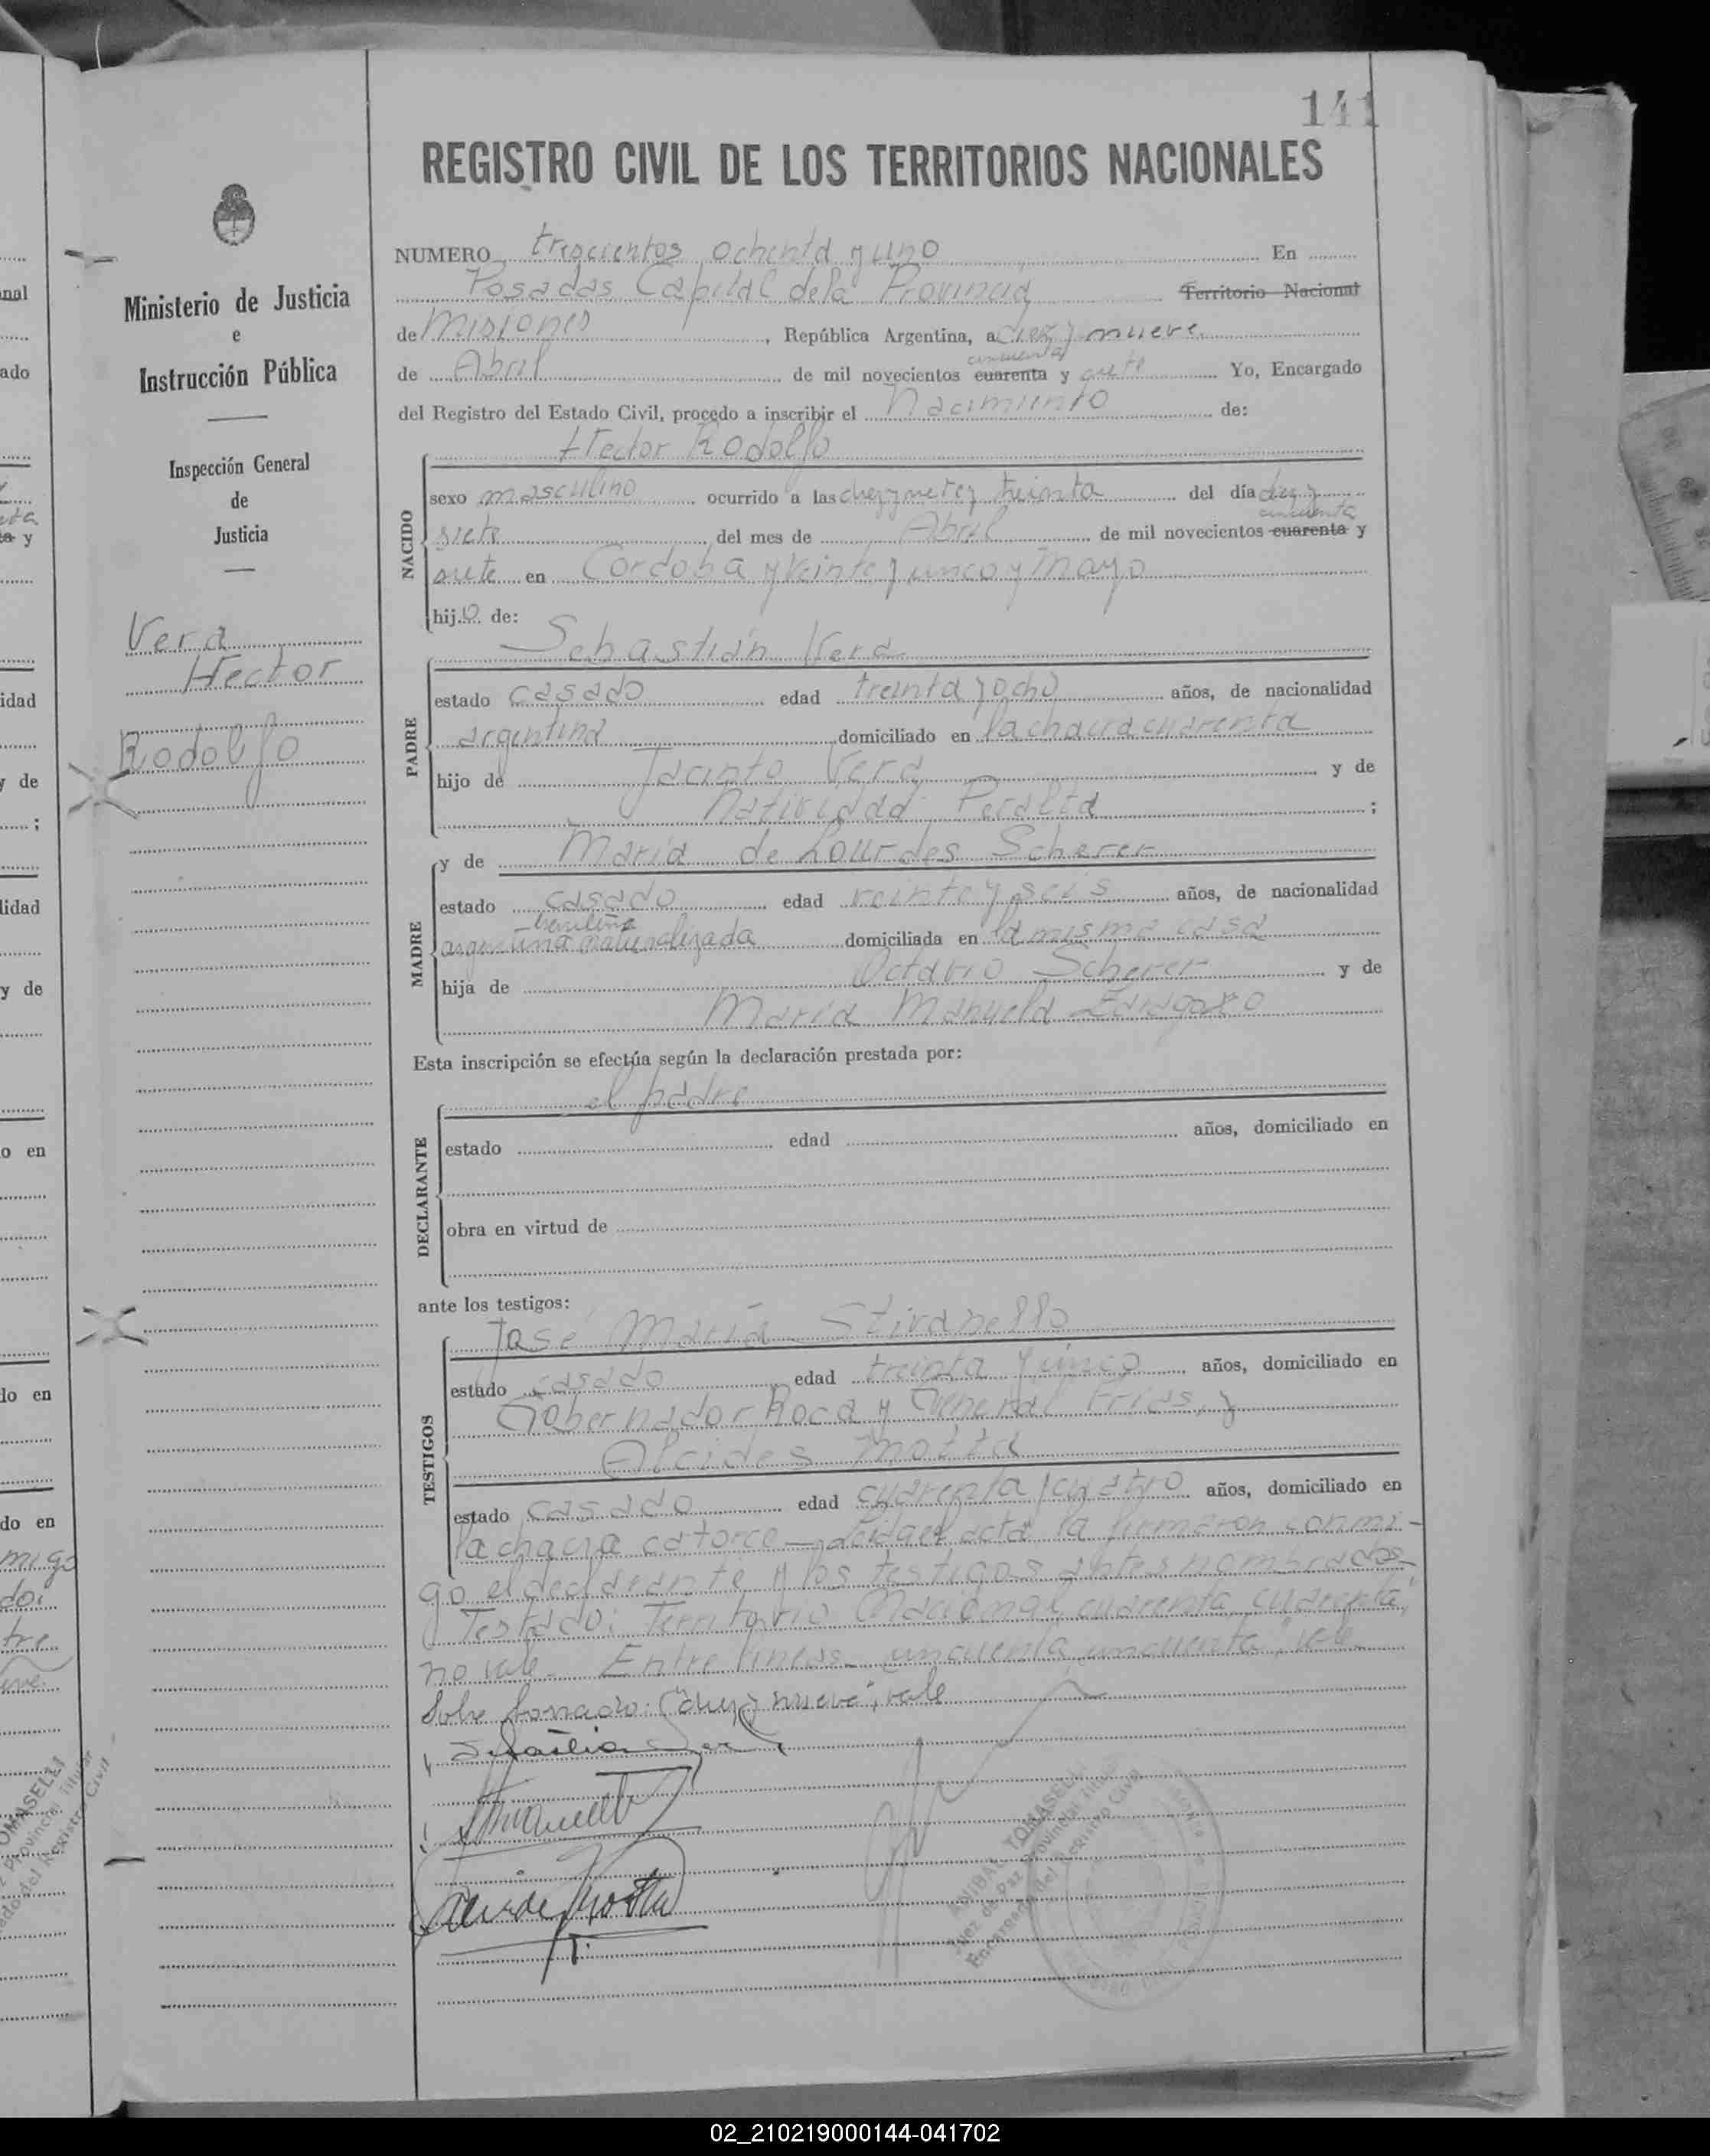 141
REGISTRO CIVIL DE LOS TERRITORIOS NACIONALES
Ministerio de Justicia
e
Instrucción Pública
Inspección General
de
Justicia
Vera
Hector
Rodolfo
NUMERO trescientos ochenta y uno En
Posadas Capital de la Provincia Territorio Nacional
de Misiones, República Argentina, a diez y nueve
cincuenta
de Abril de mil novecientos cuarenta y siete Yo, Encargado
del Registro del Estado Civil, procedo a inscribir el Nacimiento de:
Hector Rodolfo
NACIDO
sexo masculino ocurrido a las diez y siete y treinta del día diez y
cincuenta
siete del mes de Abril de mil novecientos cuarenta y
siete en Cordoba y Veinte y cinco y Mayo
hijo de:
Sebastián Vera
PADRE
estado casado edad treinta y ocho años, de nacionalidad
argentina domiciliado en la chacra cuarenta
hijo de Jacinto Vera y de
Natividad Peralta ;
y de María de Lourdes Scherer
MADRE
estado casado edad veinte y seis años, de nacionalidad
brasileña
argentina naturalizada domiciliada en la misma casa
hija de Octavio Scherer y de
María Manuela
Esta inscripción se efectúa según la declaración prestada por:
el padre
DECLARANTE
estado edad años, domiciliado en
obra en virtud de
ante los testigos:
José María Stivanello
TESTIGOS
estado casado edad treinta y cinco años, domiciliado en
Gobernador Roca y General Frias, y
Alcides Motta
estado casado edad cuarenta y cuatro años, domiciliado en
la chacra catorce - Leida el acta la firmaron conmi-
go el declarante y los testigos antes nombrados-
Testado: Territorio Nacional cuarenta cuarenta,
no vale - Entre lineas - cincuenta cincuenta, vale
Sobre borrado: "diez y nueve", vale
ANIBAL TOMASELLI
Juez de Paz Provincial Titular
Encargado del Registro Civil
02_210219000144-041702